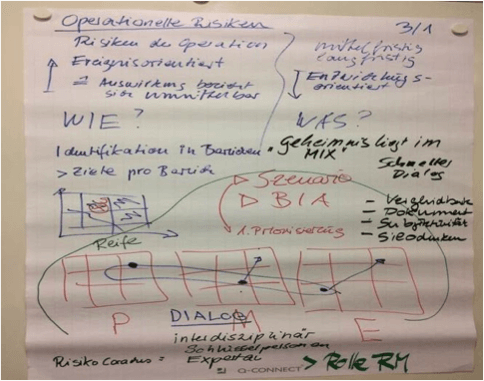 Operationelle Risiken
3/1
Risiken der Operation
Ereignisorientiert
= Auswirkung bezieht
sich unmittelbar
mittelfristig
langfristig
Entwicklungs-
orientiert
WIE?
WAS?
Identifikation in Bereichen
> Ziele pro Bereich
"Geheimnis liegt im
MIX"
Schneller
Dialog
▷ Szenario
▷ BIA
1. Priorisierung
- Vergleichbarkeit
- Dokument
- Subjektivität
- Silodenken
Reife
P
M
E
DIALOG
interdisziplinär
Schlüsselpersonen
Experten
Risiko
=
> Rolle RM
Q-CONNECT